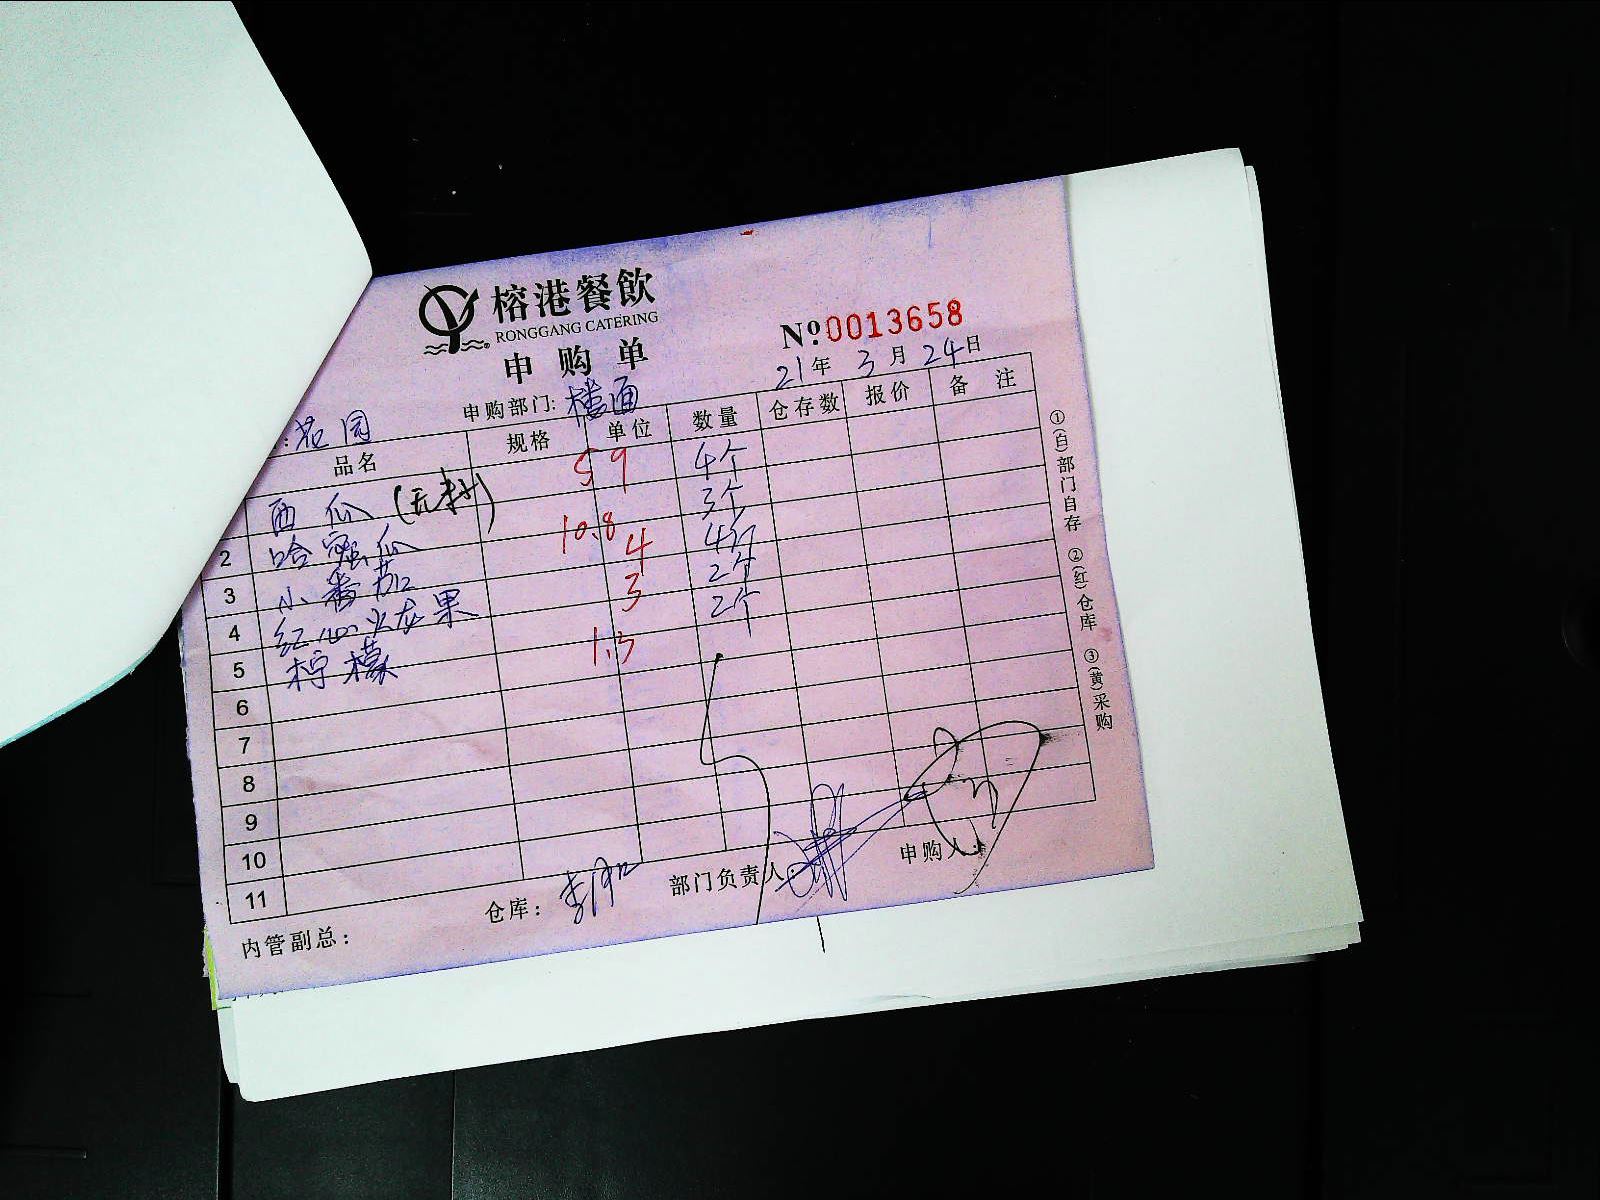 榕港餐飲
RONGGANG CATERING
申购单
№:0013658
21年 3月 24日
:花园 申购部门:楼面
品名 规格 单位 数量 仓存数 报价 备注
西瓜(无籽) 59 4个
2 哈密瓜 10.8 3个
3 小番茄 4 4斤
4 红心火龙果 3 2个
5 柠檬 1.3 2个
6
7
8
9
10
11
内管副总: 仓库: 部门负责人: 申购人:
①(白)部门自存 ②(红)仓库 ③(黄)采购